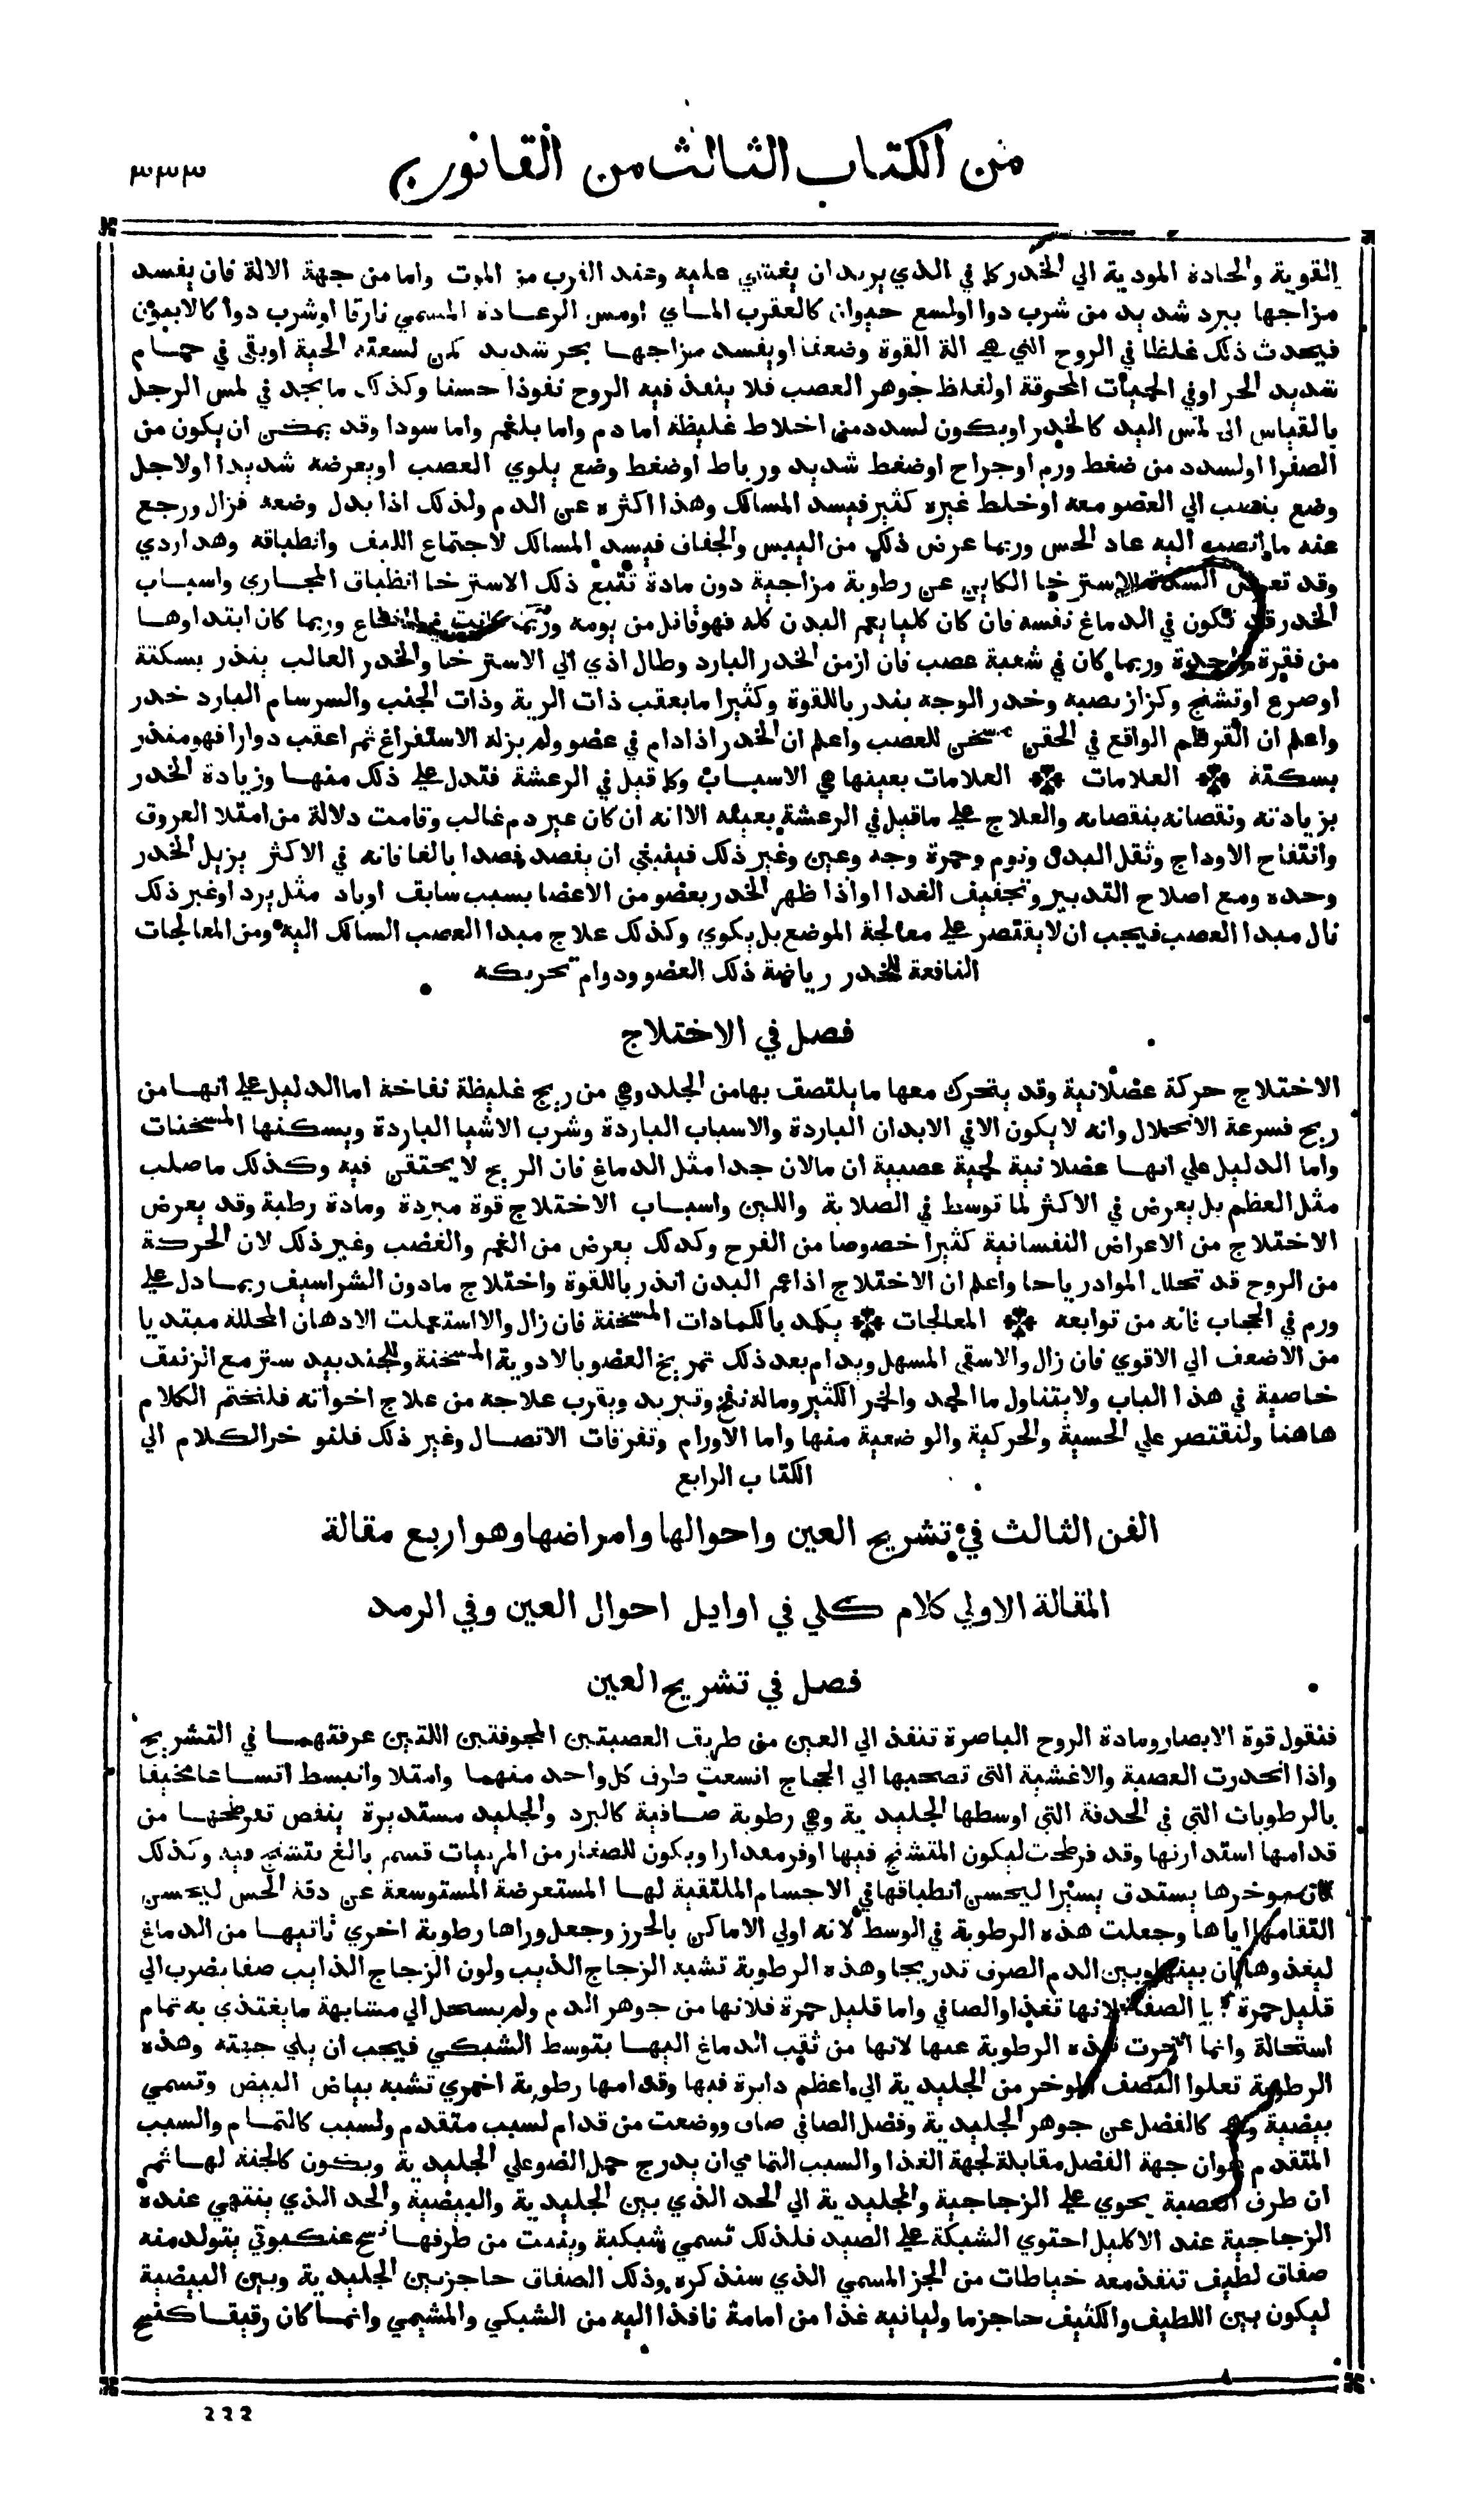 من الكتاب الثالث من القانون
٣٣٣
القوية والحادة المودية الي الخدر كما في الذي يريد ان يغشي عليه وعند القرب من الموت واما من جهة الالة فان يفسد
مزاجها ببرد شديد من شرب دوا اولسع حيوان كالعقرب الماي اومس الرعادة المسمي نارقا اوشرب دوا كالافيون
فيحدث ذلك غلظا في الروح التي هي الة القوة وضعفا اويفسد مزاجها بحر شديد كمن لسعته الحية اوبقي في حمام
شديد الحر اوفي الحميات المحرقة اولغلظ جوهر العصب فلا ينفذ فيه الروح نفوذا حسنا وكذلك ما يجد في لمس الرجل
بالقياس الي لمس اليد كالخدر اويكون لسدد من اخلاط غليظة اما دم واما بلغم واما سودا وقد يمكن ان يكون من
الصفرا اولسدد من ضغط ورم اوجراح اوضغط شديد ورباط اوضغط وضع يلوي العصب اويعرضه شديدا اولاجل
وضع ينصب الي العضو معه اوخلط غيره كثير فيسد المسالك وهذا اكثره عن الدم ولذلك اذا بدل وضعه فزال ورجع
عنه ما انصب اليه عاد الحس وربما عرض ذلك من اليبس والجفاف فيسد المسالك لاجتماع الليف وانطباقه وهذا ردي
وقد تعرض السكتة الاسترخا الكاين عن رطوبة مزاجية دون مادة تتبع ذلك الاسترخا انطباق المجاري واسباب
الخدر قد تكون في الدماغ نفسه فان كان كليا يعم البدن كله فهو قاتل من يومه وربما كانت في النخاع وربما كان ابتداوها
من فقرة واحدة وربما كان في شعبة عصب فان ازمن الخدر البارد وطال اذي الي الاسترخا والخدر الغالب ينذر بسكتة
اوصرع اوتشنج وكزاز يصيبه وخدر الوجه ينذر باللقوة وكثيرا ما يعقب ذات الرية وذات الجنب والسرسام البارد خدر
واعلم ان القرطم الواقع في الحقن يسخن للعصب واعلم ان الخدر اذا دام في عضو ولم يزله الاستفراغ ثم اعقب دوارا فهو منذر
بسكتة ❈ العلامات ❈ العلامات بعينها هي الاسباب وكما قيل في الرعشة فتدل علي ذلك منها وزيادة الخدر
بزيادته ونقصانه بنقصانه والعلاج علي ما قيل في الرعشة بعينه الا انه ان كان عن دم غالب وقامت دلالة من امتلا العروق
وانتفاخ الاوداج وثقل البدن ونوم وحمرة وجه وعين وغير ذلك فينبغي ان يفصد فصدا بالغا فانه في الاكثر يزيل الخدر
وحده ومع اصلاح التدبير وتجفيف الغدا واذا ظهر الخدر بعضو من الاعضا بسبب سابق اوباد مثل برد اوغير ذلك
نال مبدا العصب فيجب ان لا يقتصر علي معالجة الموضع بل يكوي وكذلك علاج مبدا العصب السالك اليه ومن المعالجات
النافعة للخدر رياضة ذلك العضو ودوام تحريكه
فصل في الاختلاج
الاختلاج حركة عضلانية وقد يتحرك معها ما يلتصق بها من الجلد وهي من ريح غليظة نفاخة اما الدليل علي انها من
ريح فسرعة الانحلال وانه لا يكون الا في الابدان الباردة والاسباب الباردة وشرب الاشيا الباردة ويسكنها المسخنات
واما الدليل علي انها عضلانية لحمية عصبية ان ما لان جدا مثل الدماغ فان الريح لا يحتقن فيه وكذلك ما صلب
مثل العظم بل يعرض في الاكثر لما توسط في الصلابة واللين واسباب الاختلاج قوة مبردة ومادة رطبة وقد يعرض
الاختلاج من الاعراض النفسانية كثيرا خصوصا من الفرح وكذلك يعرض من الغم والغضب وغير ذلك لان الحركة
من الروح قد تحلل المواد رياحا واعلم ان الاختلاج اذا عم البدن انذر باللقوة واختلاج ما دون الشراسيف ربما دل علي
ورم في الحجاب فانه من توابعه ❈ المعالجات ❈ يكمد بالكمادات المسخنة فان زال والا استعملت الادهان المحللة مبتديا
من الاضعف الي الاقوي فان زال والا سقي المسهل ويدام بعد ذلك تمريخ العضو بالادوية المسخنة وللجندبيدستر مع الزنبق
خاصية في هذا الباب ولا يتناول ما الجمد والخمر الكثير وما له نفخ وتبريد ويقرب علاجه من علاج اخواته فلنختم الكلام
هاهنا ولنقتصر علي الحسية والحركية والوضعية منها واما الاورام وتفرقات الاتصال وغير ذلك فلنوخر الكلام الي
الكتاب الرابع
الفن الثالث في تشريح العين واحوالها وامراضها وهو اربع مقالة
المقالة الاولي كلام كلي في اوايل احوال العين وفي الرمد
فصل في تشريح العين
فنقول قوة الابصار ومادة الروح الباصرة تنفذ الي العين من طريق العصبتين المجوفتين اللتين عرفتهما في التشريح
واذا انحدرت العصبة والاغشية التي تصحبها الي الحجاج اتسعت طرف كل واحد منهما وامتلا وانبسط اتساعا محيفا
بالرطوبات التي في الحدقة التي اوسطها الجليدية وهي رطوبة صافية كالبرد والجليد مستديرة ينقص تفرطحها من
قدامها استدارتها وقد فرطحت ليكون المتشنج فيها اوفر مقدارا ويكون للصغار من المرييات قسم بالغ يتشنج فيه وكذلك
كان موخرها يستدق يسيرا ليحسن انطباقها في الاجسام الملتقية لها المستعرضة المستوسعة عن دقة الحس ليحسن
التقامها اياها وجعلت هذه الرطوبة في الوسط لانه اولي الاماكن بالحرز وجعل وراها رطوبة اخري تاتيها من الدماغ
ليغذوها فان بينها وبين الدم الصرف تدريجا وهذه الرطوبة تشبه الزجاج الذيب ولون الزجاج الذايب صفا يضرب الي
قليل حمرة اما الصفا فلانها تغذوا الصافي واما قليل حمرة فلانها من جوهر الدم ولم يستحل الي مشابهة ما يغتذي به تمام
استحالة وانما اخرت هذه الرطوبة عنها لانها من ثقب الدماغ اليها بتوسط الشبكي فيجب ان يلي جهته وهذه
الرطوبة تعلوا النصف الموخر من الجليدية الي اعظم دايرة فيها وقدامها رطوبة اخري تشبه بياض البيض وتسمي
بيضية وهي كالفضل عن جوهر الجليدية وفضل الصافي صاف ووضعت من قدام لسبب متقدم ولسبب كالتمام والسبب
المتقدم هو ان جهة الفضل مقابلة لجهة الغذا والسبب التمامي ان يدرج حمل الضو علي الجليدية ويكون كالجنة لها ثم
ان طرف العصبة يحوي علي الزجاجية والجليدية الي الحد الذي بين الجليدية والبيضية والحد الذي ينتهي عنده
الزجاجية عند الاكليل احتوي الشبكة علي الصيد فلذلك تسمي شبكية وينبت من طرفها نسج عنكبوتي يتولد منه
صفاق لطيف تنفذ معه خياطات من الجز المسمي الذي سنذكره وذلك الصفاق حاجز بين الجليدية وبين البيضية
ليكون بين اللطيف والكثيف حاجز ما ولياتيه غذا من امامه نافذا اليه من الشبكي والمشيمي وانما كان رقيقا كنسج